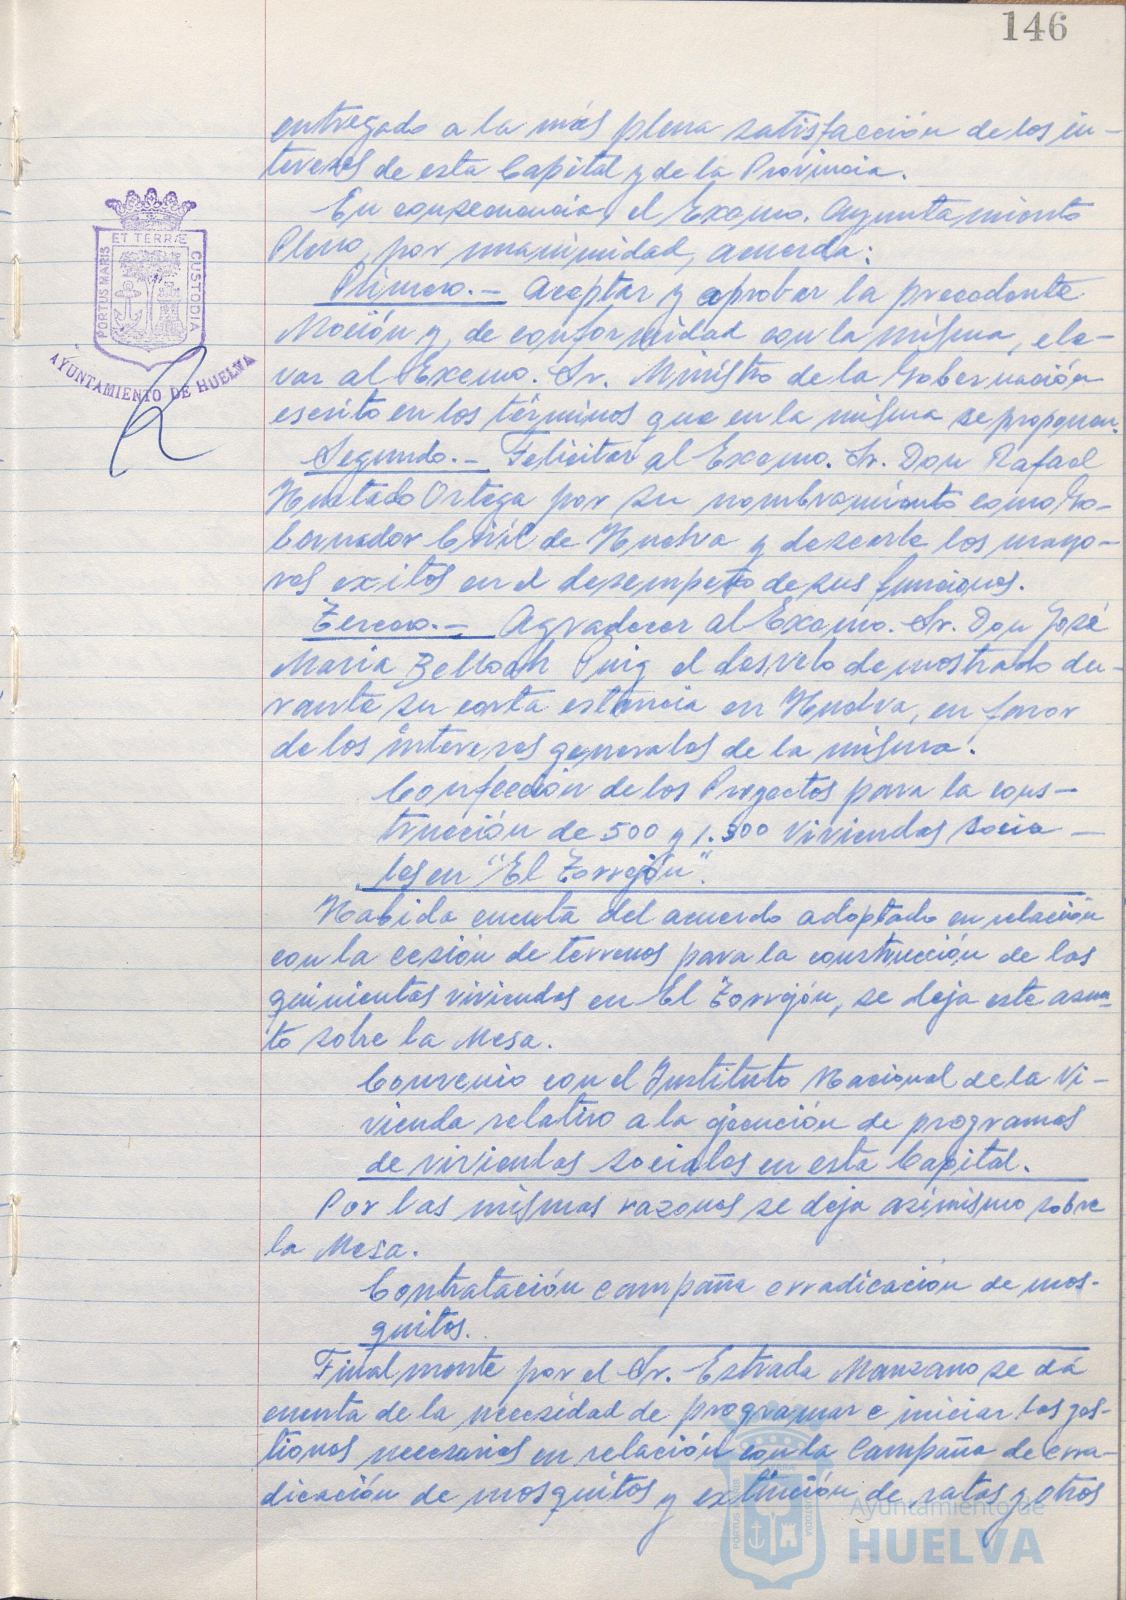 146
entregado a la más plena satisfacción de los in-
tereses de esta Capital y de la Provincia.
En consecuencia, el Excmo. Ayuntamiento
Pleno, por unanimidad, acuerda:
Primero.- Aceptar y aprobar la precedente
Moción y, de conformidad con la misma, ele-
var al Excmo. Sr. Ministro de la Gobernación
escrito en los términos que en la misma se proponen.
Segundo.- Felicitar al Excmo. Sr. Don Rafael
Hurtado Ortega por su nombramiento como Go-
bernador Civil de Huelva y desearle los mayo-
res exitos en el desempeño de sus funciones.
Tercero.- Agradecer al Excmo. Sr. Don José
Maria Belloch Puig el desvelo demostrado du-
rante su corta estancia en Huelva, en favor
de los intereses generales de la misma.
Confección de los Proyectos para la cons-
trucción de 500 y 1.500 Viviendas Socia-
les en "El Torrejón".
Habida cuenta del acuerdo adoptado en relación
con la cesión de terrenos para la construcción de las
quinientas viviendas en El Torrejón, se deja este asun-
to sobre la Mesa.
Convenio con el Instituto Nacional de la Vi-
vienda relativo a la ejecución de programas
de viviendas sociales en esta Capital.
Por las mismas razones se deja asimismo sobre
la Mesa.
Contratación campaña erradicación de mos-
quitos.
Finalmente por el Sr. Estrada Manzano se dá
cuenta de la necesidad de programar e iniciar las ges-
tiones necesarias en relación con la Campaña de erra-
dicación de mosquitos y extinción de ratas y otros
PORTUS MARIS
ET TERRÆ
CUSTODIA
AYUNTAMIENTO DE HUELVA
Ayuntamiento de
HUELVA